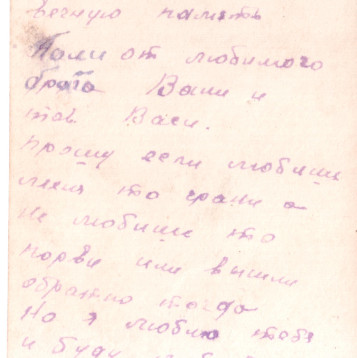 вечную память
Коли от любимого
брата Вани и
тов Васи.
прошу если любиш
меня то храни а
не любиш то
порви или вышли
обратно тогда
Но я люблю тебя
и буду